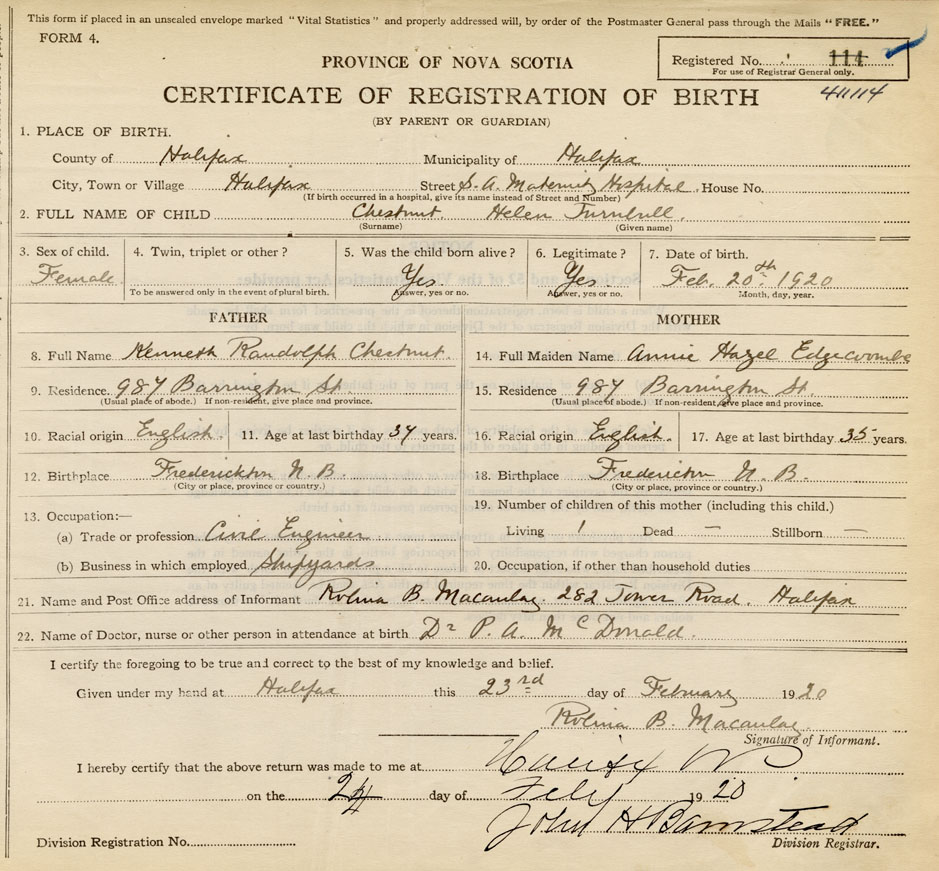 This form if placed in an unsealed envelope marked "Vital Statistics" and properly addressed will, by order of the Postmaster General pass through the Mails "FREE."
FORM 4.
Registered No. 114
For use of Registrar General only.
PROVINCE OF NOVA SCOTIA
CERTIFICATE OF REGISTRATION OF BIRTH
(BY PARENT OR GUARDIAN)
1. PLACE OF BIRTH.
County of Halifax Municipality of Halifax
City, Town or Village Halifax Street S. A. Maternity Hospital House No.
(If birth occurred in a hospital, give its name instead of Street and Number)
2. FULL NAME OF CHILD Chestnut Helen Turnbull.
(Surname) (Given name)
3. Sex of child. 4. Twin, triplet or other? 5. Was the child born alive? 6. Legitimate? 7. Date of birth.
Female Yes. Yes Feb. 20th 1920
To be answered only in the event of plural birth. Answer, yes or no. Answer, yes or no. Month, day, year.
FATHER MOTHER
8. Full Name Kenneth Randolph Chestnut. 14. Full Maiden Name Annie Hazel Edgecombe
9. Residence 987 Barrington St. 15. Residence 987 Barrington St.
(Usual place of abode.) If non-resident, give place and province. (Usual place of abode.) If non-resident, give place and province.
10. Racial origin English. 11. Age at last birthday 37 years. 16. Racial origin English. 17. Age at last birthday 35 years.
12. Birthplace Frederickton N. B. 18. Birthplace Fredericton N. B.
(City or place, province or country.) (City or place, province or country.)
13. Occupation:— 19. Number of children of this mother (including this child.)
(a) Trade or profession Civil Engineer Living 1 Dead — Stillborn —
(b) Business in which employed Shipyards 20. Occupation, if other than household duties
21. Name and Post Office address of Informant Rolina B. Macaulay. 282 Tower Road. Halifax
22. Name of Doctor, nurse or other person in attendance at birth Dr P. A. McDonald.
I certify the foregoing to be true and correct to the best of my knowledge and belief.
Given under my hand at Halifax this 23rd day of February 1920
Rolina B. Macaulay.
Signature of Informant.
I hereby certify that the above return was made to me at Halifax
on the 24 day of Feby 1920
John H Barnstead
Division Registration No. Division Registrar.